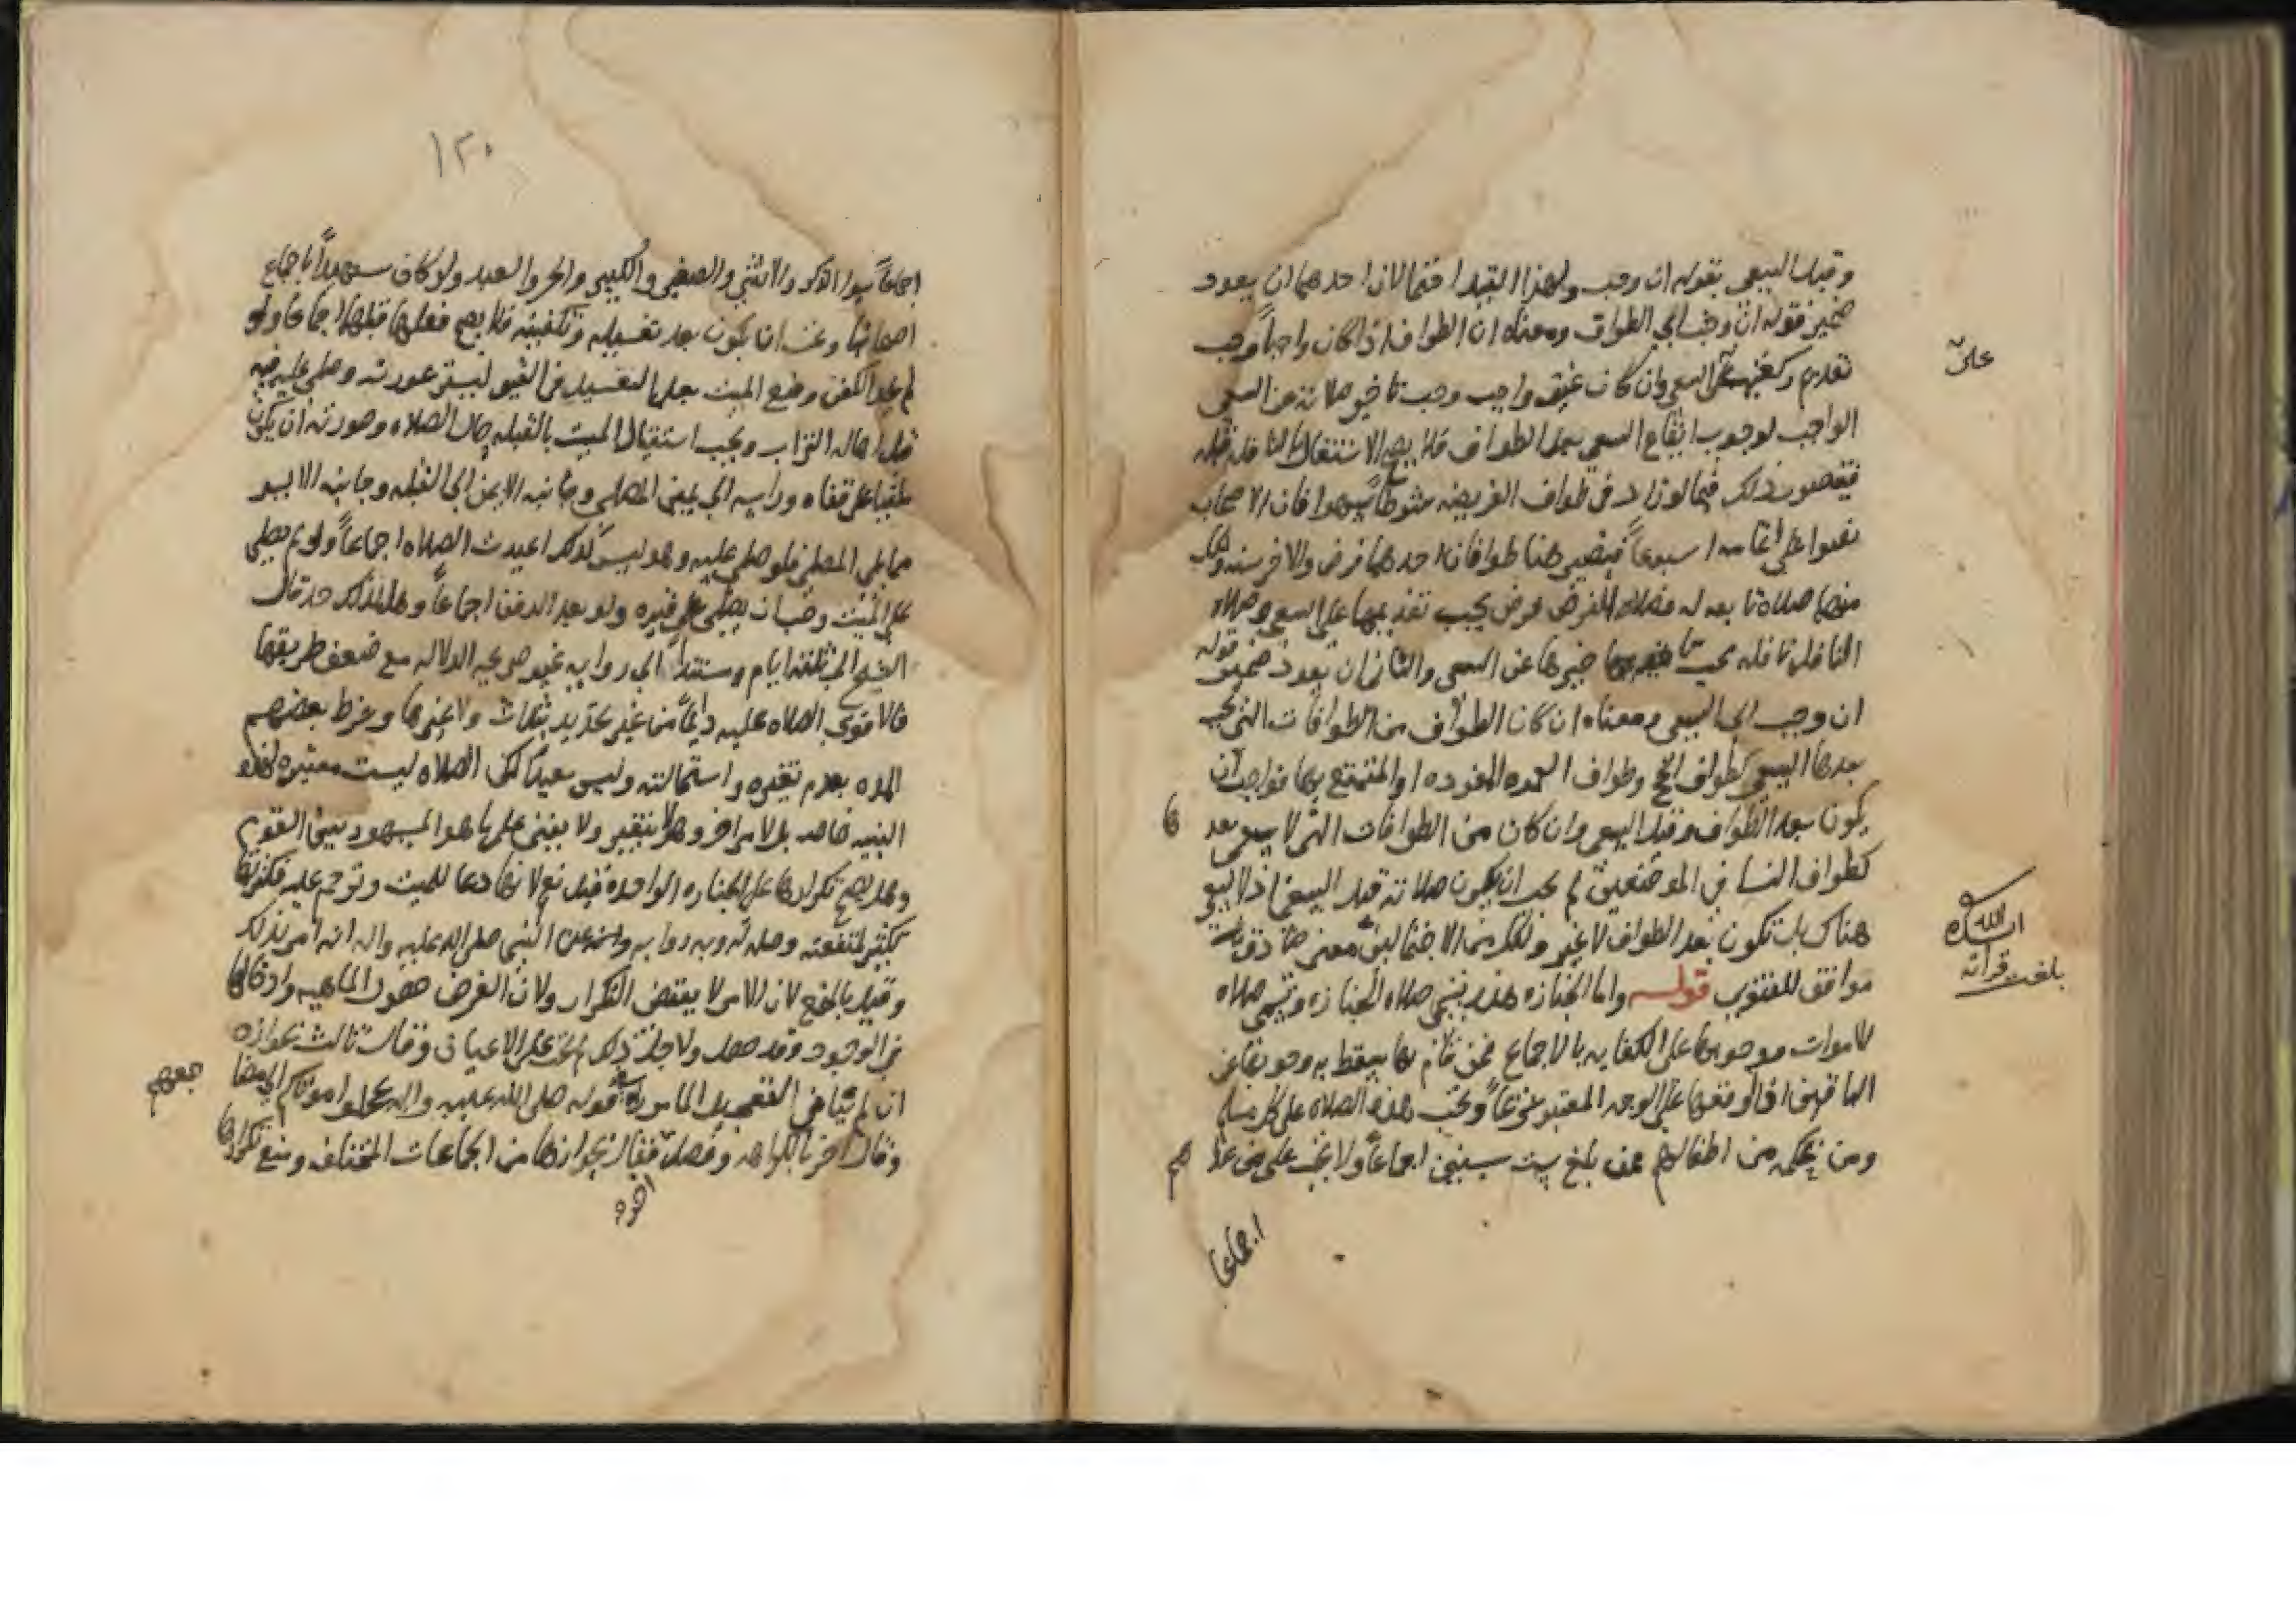 وقبل السعي بقوله ان وجب ولهذا القيد احتمالان احدهما ان يعود
ضمير قوله ان وجب الي الطواف ومعناه ان الطواف اذا كان واجباً وجب
تقديم ركعتيه على السعي وان كان غير واجب وجب تاخير صلاته عن السعي
الواجب لوجوب ايقاع السعي بعد الطواف فلا يصح الاشتغال بالنافله قبله
فيتصور ذلك فيما لو زاد في طواف الفريضه شوطاً سهوا فان الاصحاب
نصوا على اتمامه اسبوعاً فيصير هنا طوافان احدهما فرض والاخر سنه ولكل
منهما صلاة تابعه له فصلاة الفرض فرض يجب تقديمها على السعي وصلاة
النافله نافله يجب تاخيرها عن السعي والثاني ان يعود ضمير قوله
ان وجب الي السعي ومعناه ان كان الطواف من الطوافات التي يجب
بعدها السعي كطواف الحج وطواف العمره المفرده او المتمتع بها فواجب ان
يكون بعد الطواف وقبل السعي وان كان من الطوافات التي لا سعي بعدها
كطواف النسا في الموضعين لم يجب ان يكون صلاته قبل السعي اذ لا سعي
هناك بل تكون بعد الطواف لا غير ولكل من الاحتمالين معنى صادق
موافق للفتوى قوله واما الجنازه هذه تسمى صلاة الجنازه وتسمى صلاه
الاموات ووجوبها على الكفايه بالاجماع فمن قام بها سقط به وجوبها عن
الباقين اذا اوقعها على الوجه المعتبر شرعاً وتجب هذه الصلاه على كل مسلم
ومن بحكمه من اطفالهم ممن بلغ ست سنين اجماعاً ولا تجب على من عداهم
اجماعا
على
ان الله
بلغت قراته
١٢٠
اجماعاً سوا الذكور والانثى والصغير والكبير والحر والعبد ولو كان شهيداً باجماع
اصحابنا وعندنا يكون بعد تغسيله وتكفينه فلا يصح فعلها قبلها اجماعا ولو
لم يجد الكفن وضع الميت بعد التغسيل في القبر ليستر عورته وصلى عليه فيه
قبل اهاله التراب ويجب استقبال الميت بالقبله حال الصلاه وصورته ان يكون
ملقيا على قفاه وراسه الي يمين المصلي وجانبه الايمن الى القبله وجانبه الايسر
مما يلي المصلي فلو صلى عليه وهو ليس كذلك اعيدت الصلاه اجماعاً ولو لم يصلي
على الميت وجب ان يصلى على قبره ولو بعد الدفن اجماعاً وهل لذلك حد قال
الشيخ الى ثلثة ايام مستنداً الي روايه غير صريحه الدلاله مع ضعف طريقها
فالاقوى الصلاه عليه دايماً من غير تحديد بثلاث ولا غيرها وشرط بعضهم
المده بعدم تغيره واستحالته وليس بعيداً لكن الصلاه ليست معتبره لهذه
البنيه خاصه بل لامر اخر وهو لا يتغير ولا يفنى على ما هو المشهور بين القوم
وهل يصح تكرارها على الجنازه الواحده قيل نعم لانها دعا للميت وترحم عليه فتكرارها
تكثير لمنفعته وصلة له وبه روايه واسنده عن النبي صلى الله عليه واله انه امر بذلك
وقيل بالمنع لان الامر لا يقتضي التكرار ولان الغرض حصول الماهيه وادخالها
في الوجود وقد حصل ولاجل ذلك لم تجب على الاعيان وقال ثالث بجوازه
ان لم ينافي التعجيل المامور به في قوله صلى الله عليه واله عجلوا موتاكم الي مضاجعهم
وقال اخر بالكراهه وفصل فقال بجوازها من الجماعات المختلفه ومنع تكرارها
اخره